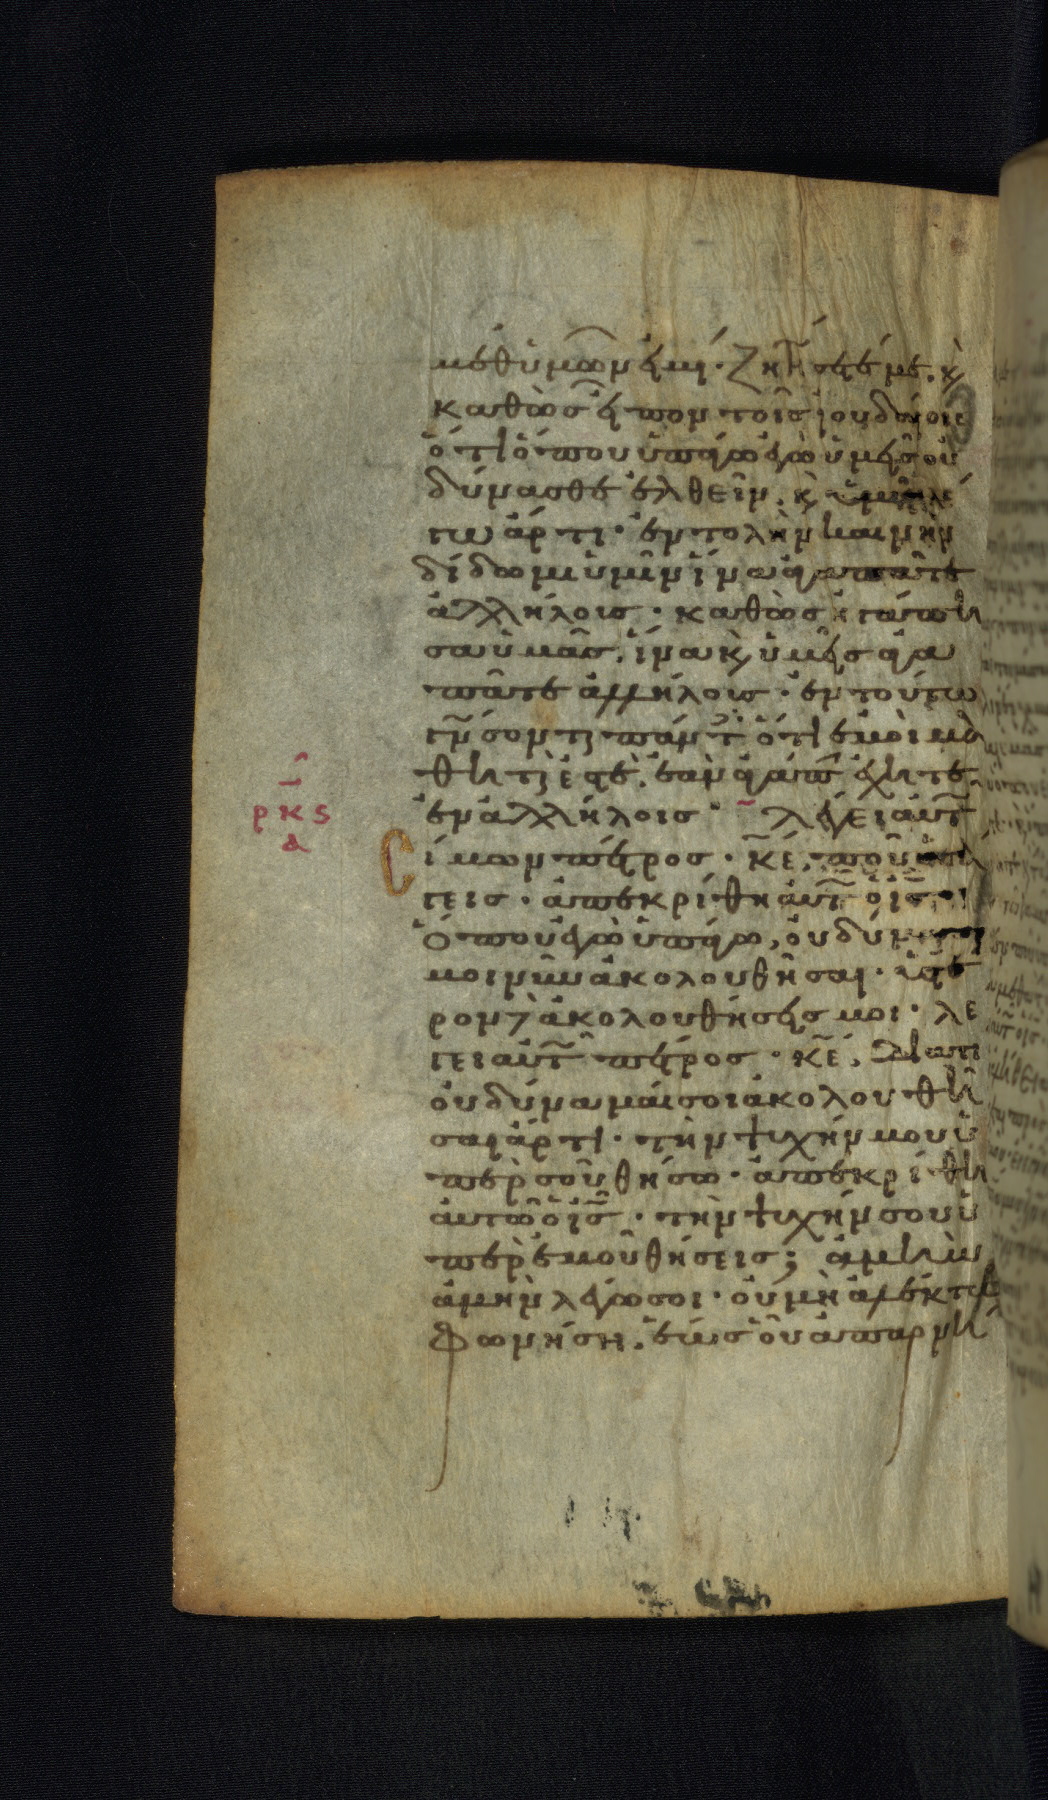 μεθ ὑμῶν εἰμί· ζητήσετέ με. κ
καθὼς εἶπον τοῖς ἰουδαίοις
ὅτι ὅπου ὑπάγω ἐγὼ ὑμεῖς οὐ
δύνασθε ἐλθεῖν. κ ὑμῖν λέ
γω ἄρτι· ἐντολὴν καινὴν
δίδωμι ὑμῖν ἵνα ἀγαπᾶτε
ἀλλήλοις· καθὼς ἠγάπη
σα ὑμᾶς. ἵνα κ ὑμεῖς ἀγα
πᾶτε ἀλλήλοις· ἐν τούτω
γνώσοντ πάντ ὅτι ἐμοὶ μα
θητ ἐστὲ. ἐὰν ἀγάπ ἔχητε
ἐν ἀλλήλοις· λέγει αὐτ
ρκς
δ
Σίμων πέτρος· κε. ποῦ ὑπά
γεις· ἀπεκρίθη αὐτ ὁ ις·
Ὅπου ἐγὼ ὑπάγω, οὐ δύνασαι
μοι νῦν ἀκολουθῆσαι· ὕστε
ρον δ ἀκολουθήσεις μοι· λέ
γει αὐτ πέτρος· κε, διατι
οὐ δύναμαί σοι ἀκολουθῆ
σαι ἄρτι· τὴν ψυχήν μου ὑ
πὲρ σοῦ θήσω· ἀπεκρίθη
αὐτῶ ὁ ις· τὴν ψυχήν σου ὑ
πὲρ ἐμοῦ θήσεις; ἀμὴν
ἀμὴν λέγω σοι· οὐ μὴ ἀλέκτωρ
φωνήση. ἕως οὗ ἀπαρνή